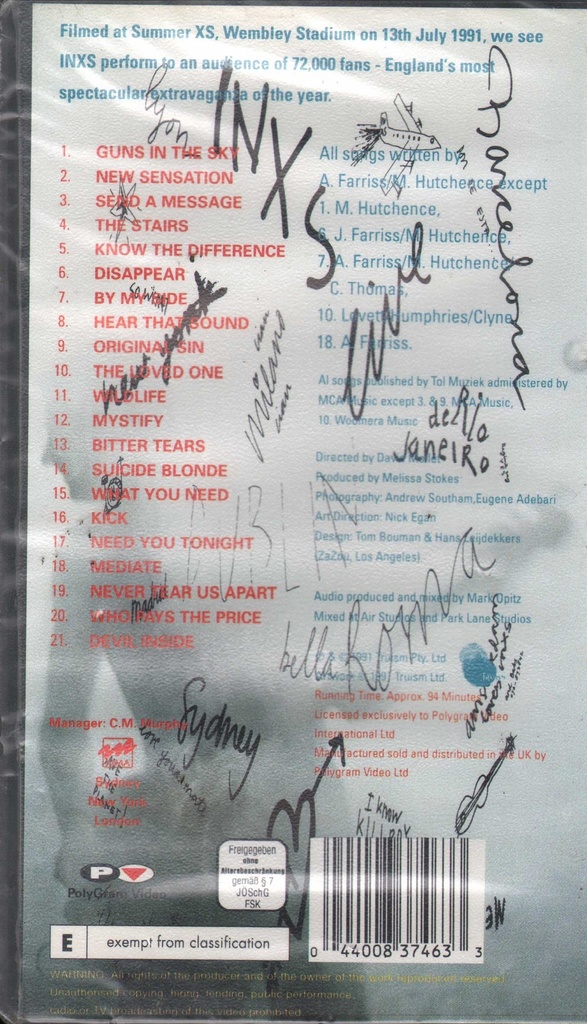 Filmed at Summer XS, Wembley Stadium on 13th July 1991, we see
INXS perform to an audience of 72,000 fans - England's most
spectacular extravaganza of the year.
1. GUNS IN THE SKY
2. NEW SENSATION
3. SEND A MESSAGE
4. THE STAIRS
5. KNOW THE DIFFERENCE
6. DISAPPEAR
7. BY MY SIDE
8. HEAR THAT SOUND
9. ORIGINAL SIN
10. THE LOVED ONE
11. WILDLIFE
12. MYSTIFY
13. BITTER TEARS
14. SUICIDE BLONDE
15. WHAT YOU NEED
16. KICK
17. NEED YOU TONIGHT
18. MEDIATE
19. NEVER TEAR US APART
20. WHO PAYS THE PRICE
21. DEVIL INSIDE
All songs written by
A. Farriss/M. Hutchence except
1. M. Hutchence,
6. J. Farriss/M. Hutchence,
7. A. Farriss/M. Hutchence
C. Thomas,
10. Lovett/Humphries/Clyne
18. A. Farriss.
Al songs published by Tol Muziek administered by
MCA Music except 3. & 9. MCA Music,
10. Woomera Music
Directed by David Mallet
Produced by Melissa Stokes
Photography: Andrew Southam,Eugene Adebari
Art Direction: Nick Egan
Design: Tom Bouman & Hans Leijdekkers
(ZaZou, Los Angeles)
Audio produced and mixed by Mark Opitz
Mixed at Air Studios and Park Lane Studios
℗ & © 1991 Truism Pty. Ltd.
Artwork © 1991 Truism Ltd.
Running Time: Approx. 94 Minutes
Licensed exclusively to Polygram Video
International Ltd
Manufactured sold and distributed in the UK by
Polygram Video Ltd
lyon
INXS
Live
Barcelona
new york
milano
de Rio
JaneiRo
DUBLIN
madrid
bella Roma
Sydney
I know
KILROY
Manager: C.M. Murphy
Sydney
New York
London
PolyGram Video
Freigegeben
ohne
Altersbeschränkung
gemäß § 7
JÖSchG
FSK
E exempt from classification
0 44008 37463 3
WARNING: All rights of the producer and of the owner of the work reproduced reserved.
Unauthorised copying, hiring, lending, public performance,
radio or TV broadcasting of this video prohibited